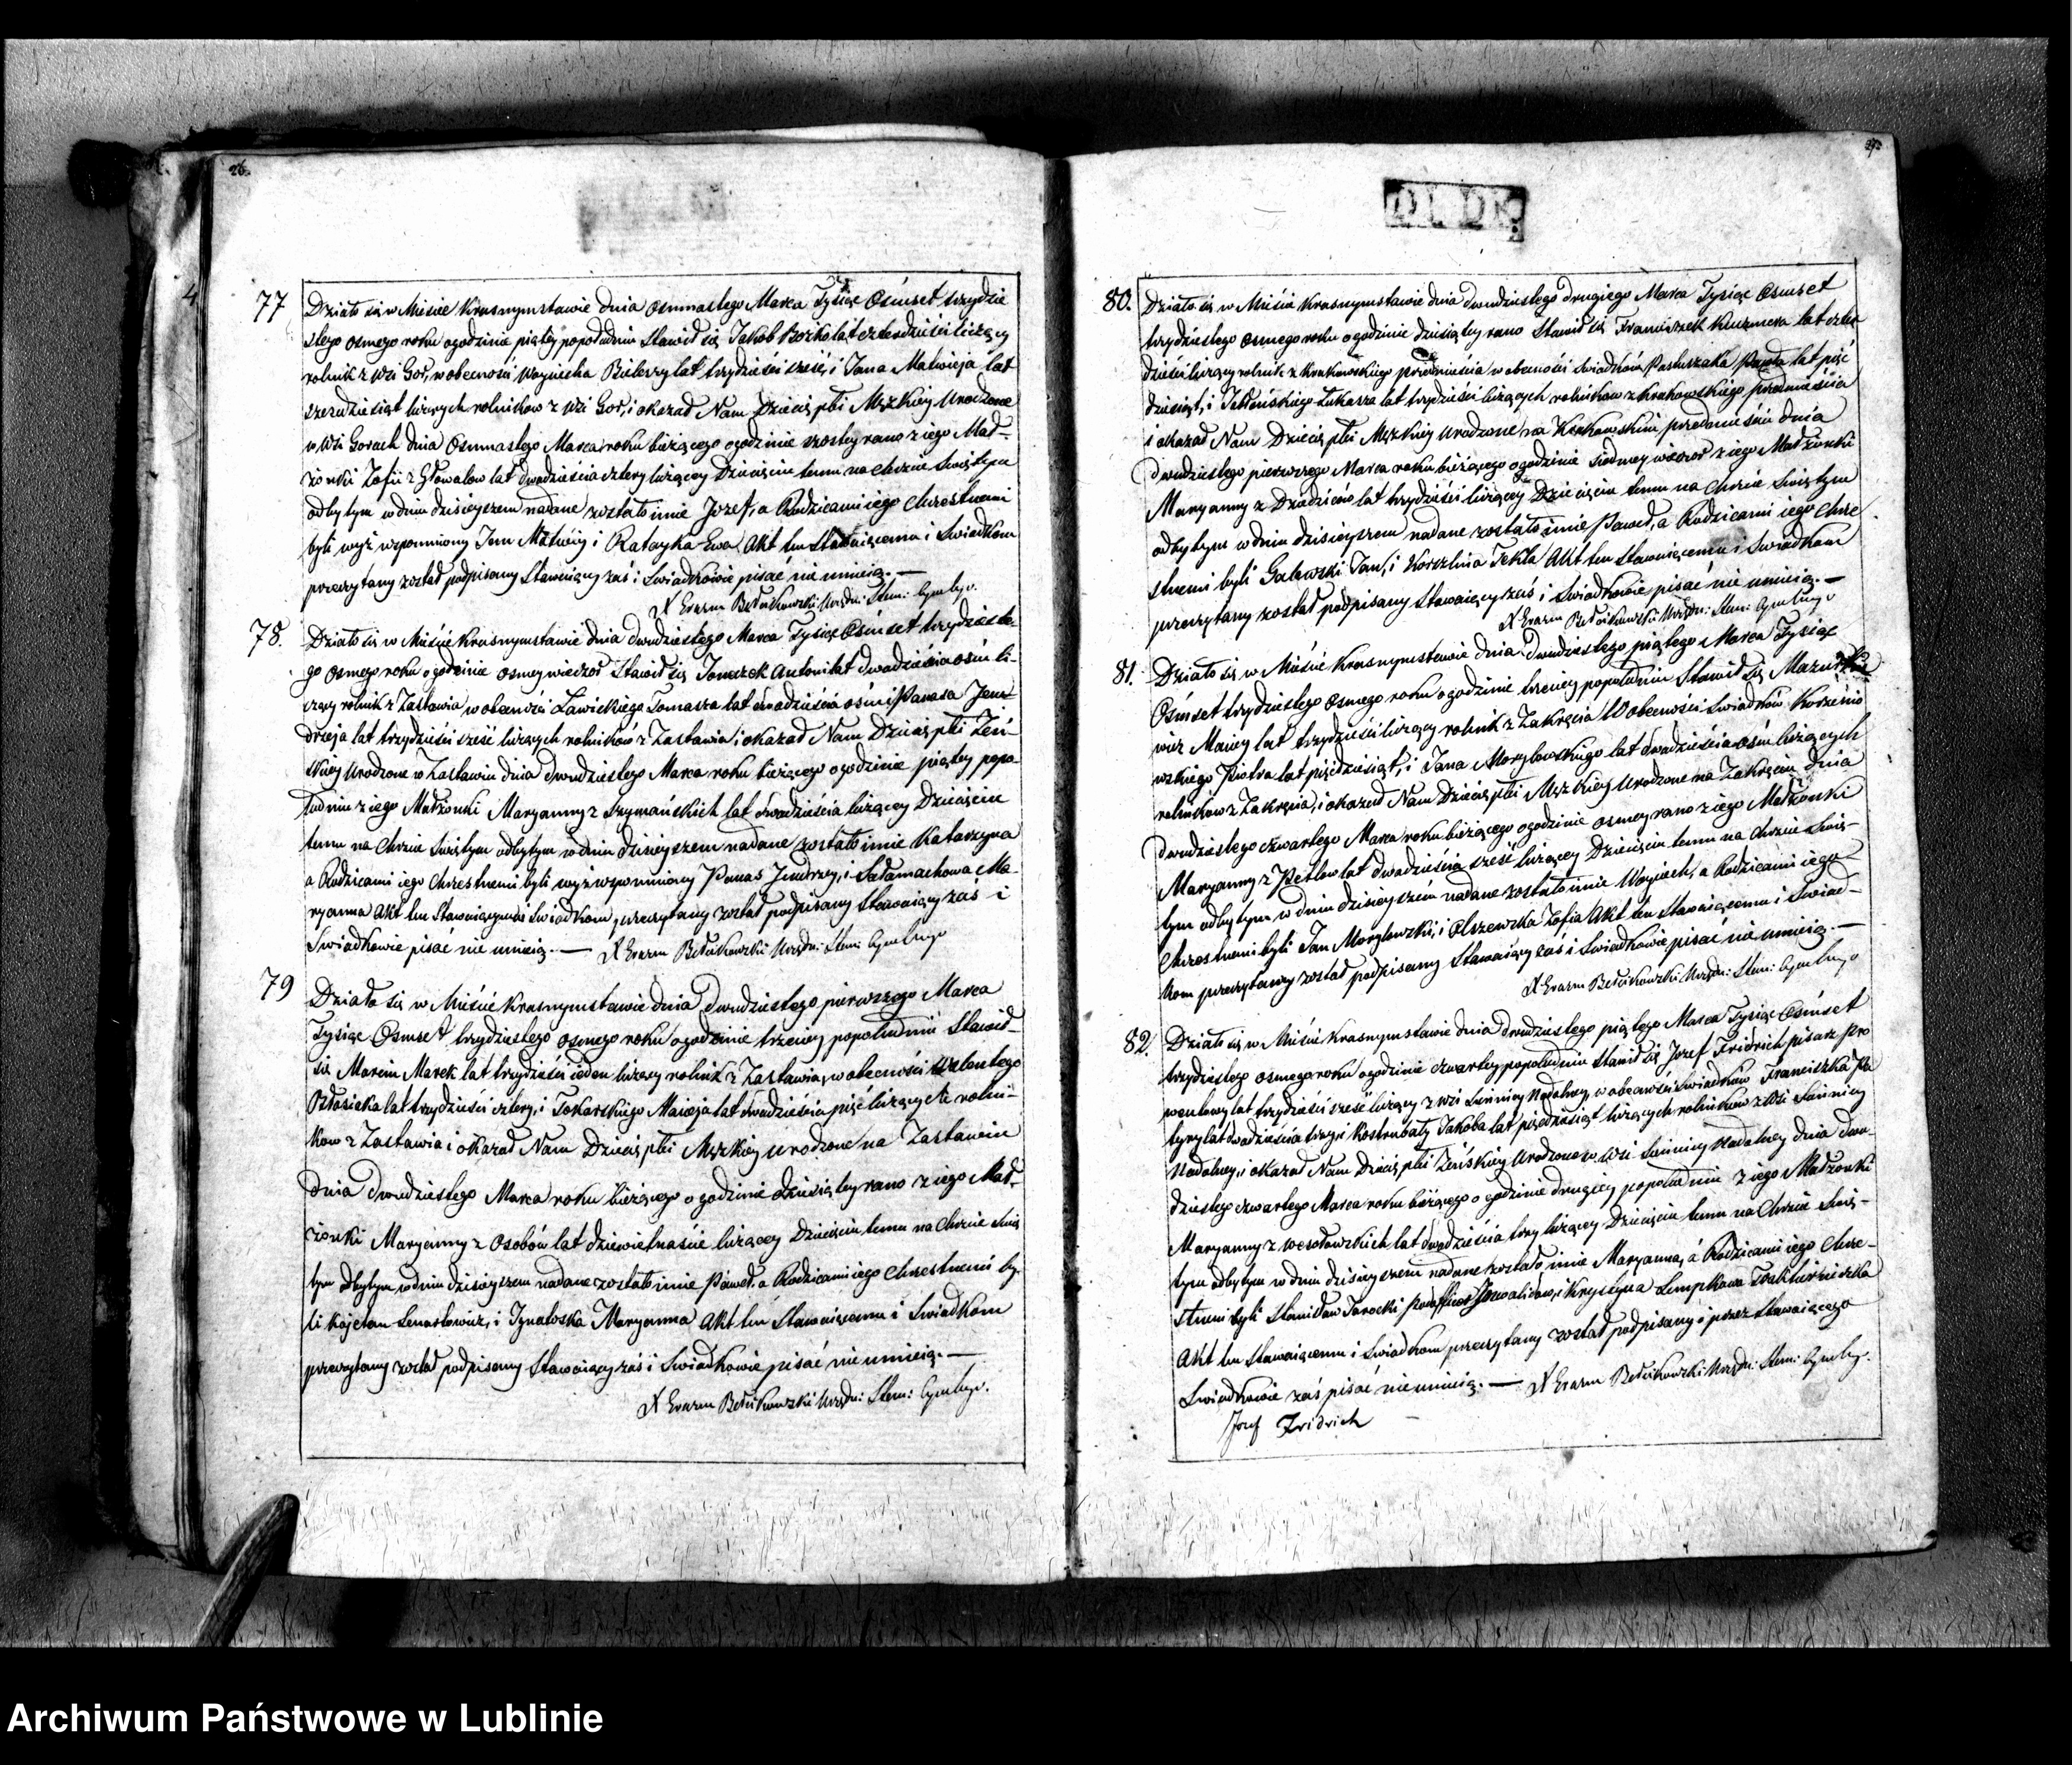 26.
77
Działo się w Mieście Krasnymstawie dnia Osmnastego Marca Tysiąc Ośmset trzydzie
stego osmego roku o godzinie piątey popołudniu Stawił się Jakob lat czterdzieści liczący
rolnik z Wsi Gor, w obecności Woyciecha lat trzydzieści sześć, i Jana Matwieja lat
szezdziesiąt liczących rolnikow z Wsi Gor, i okazał Nam Dziecię płci Męzkiey Urodzone
w Wsi Gorach dnia Osmnastego Marca roku bieżącego o godzinie szostey rano z iego Mał-
żonki Zofii z Głowalow lat dwadzieścia cztery liczącey Dziecięciu temu na Chrzcie Swiętym
odbytym w dniu dzisieyszem nadane zostało imie Jozef, a Rodzicami iego Chrzestnemi
byli wyż wspomniony Jan Matwiey i Ratayka Ewa, Akt ten Stawaiącemu i Swiadkom
przeczytany został podpisany Stawaiący zaś i Swiadkowie pisać nie umieią. —
X Erazm Bełcikowski Urzędn: Stan: Cywilnego.
78.
Działo się w Mieście Krasnymstawie dnia dwudziestego Marca Tysiąc Ośmset trzydzieste-
go osmego roku o godzinie osmey wieczor Stawił się Tomczek Antoni lat dwadzieścia ośm li-
czący rolnik z Zastawia w obecności Zawickiego Tomasza lat dwadzieścia ośm i Panasa Jen-
drzeja lat trzydzieści sześć liczących rolników z Zastawia i okazał Nam Dziecię płci Żeń-
skiey Urodzone w Zastawiu dnia dwudziestego Marca roku bieżącego o godzinie piątey popo-
łudniu z iego Małżonki Maryanny z Szymańskich lat dwadzieścia liczącey Dziecięciu
temu na Chrzcie Swiętym odbytym w dniu dzisieyszem nadane zostało imie Katarzyna
a Rodzicami iego Chrzestnemi byli wyż wspomniony Panas Jendrzey, i Sałamachowa Ma-
ryanna Akt ten Stawaiącemu i Swiadkom przeczytany został podpisany Stawaiący zaś i
Swiadkowie pisać nie umieią. — X Erazm Bełcikowski Urzędn: Stan: Cywilnego
79
Działo się w Mieście Krasnymstawie dnia dwudziestego pierwszego Marca
Tysiąc Ośmset trzydziestego osmego roku o godzinie trzeciey popołudniu Stawił
się Marcin Marek lat trzydzieści ieden liczący rolnik z Zastawia, w obecności Walentego
lat trzydzieści cztery, i Tokarskiego Macieja lat dwadzieścia pięć liczących rolni-
kow z Zastawia i okazał Nam Dziecię płci Męzkiey urodzone na Zastawiu
dnia dwudziestego Marca roku bieżącego o godzinie dziesiątey rano z iego Mał-
żonki Maryanny z Osobów lat dziewietnaście liczącey Dziecięciu temu na Chrzcie Swię
tym odbytym w dniu dzisieyszem nadane zostało imie Paweł, a Rodzicami iego Chrzestnemi by-
li Kajetan Lenartowicz, i Ignatoska Maryanna Akt ten Stawaiącemu i Swiadkom
przeczytany został podpisany Stawaiący zaś i Swiadkowie pisać nie umieią. —
X Erazm Bełcikowski Urzędn: Stan: Cywilnego.
27.
80.
Działo się w Mieście Krasnymstawie dnia dwudziestego drugiego Marca Tysiąc Ośmset
trzydziestego osmego roku o godzinie dziesiątey rano Stawił się Franciszek Kuzmera lat czter
dzieści liczący rolnik z Krakowskiego przedmieścia w obecności Swiadków Pastuszaka Pawła lat pięć
dziesiąt, i Jabłońskiego Łukasza lat trzydzieści liczących rolnikow z Krakowskiego przedmieścia
i okazał Nam Dziecię płci Męzkiey urodzone na Krakowskim przedmieściu dnia
dwudziestego pierwszego Marca roku bieżącego o godzinie siodmey wieczor z iego Małżonki
Maryanny z Dziadziow lat trzydzieści liczącey Dziecięciu temu na Chrzcie Swiętym
odbytym w dniu dzisieyszem nadane zostało imie Paweł, a Rodzicami iego Chrze
stnemi byli Galewski Jan, i Tekla Akt ten Stawaiącemu i Swiadkom
przeczytany został podpisany Stawaiący zaś i Swiadkowie pisać nie umieią. —
X Erazm Bełcikowski Urzędn: Stan: Cywilnego
81.
Działo się w Mieście Krasnymstawie dnia dwudziestego piątego Marca Tysiąc
Ośmset trzydziestego osmego roku o godzinie trzeciey popołudniu Stawił się Mazurkie
wicz Maciey lat trzydzieści liczący rolnik z Zakręcia W obecności Swiadków Korzenio
wskiego Piotra lat pięćdziesiąt, i Jana Morylowskiego lat dwadzieścia ośm liczących
rolników z Zakręcia, i okazał Nam Dziecię płci Męzkiey Urodzone na Zakręciu dnia
dwudziestego czwartego Marca roku bieżącego o godzinie osmey rano z iego Małżonki
Maryanny z Petlow lat dwadzieścia sześć liczącey Dziecięciu temu na Chrzcie Swię-
tym odbytym w dniu dzisieyszem nadane zostało imie Woyciech, a Rodzicami iego
Chrzestnemi byli Jan Morylowski, i Olszewska Zofia Akt ten Stawaiącemu i Swiad-
kom przeczytany został podpisany Stawaiący zaś i Swiadkowie pisać nie umieią. —
X Erazm Bełcikowski Urzędn: Stan: Cywilnego
82.
Działo się w Mieście Krasnymstawie dnia dwudziestego piątego Marca Tysiąc Ośmset
trzydziestego osmego roku o godzinie czwartey popołudniu Stawił się Jozef Fridrich pisarz pro
wentowy lat trzydzieści sześć liczący z wsi Siennicy Nadolney, w obecności Swiadków Franciszka Pa
tyry lat dwadzieścia trzy, i Kostrubały Jakoba lat pięćdziesiąt liczących rolników z Wsi Siennicy
Nadolney, i okazał Nam Dziecię płci Żeńskiey Urodzone w Wsi Siennicy Nadolney dnia dwu-
dziestego czwartego Marca roku bieżącego o godzinie drugiey popołudniu z iego Małżonki
Maryanny z Wesołowskich lat dwadzieścia trzy liczącey Dziecięciu temu na Chrzcie Swię-
tym odbytym w dniu dzisieyszem nadane zostało imie Maryanna, a Rodzicami iego Chrze-
stnemi byli Stanisław Jarocki Podofficer Inwalidow, i Krystyna Lempkowa Traktierniczka
Akt ten Stawaiącemu i Swiadkom przeczytany został podpisany i przez Stawaiącego
Swiadkowie zaś pisać nie umieią. — X Erazm Bełcikowski Urzędn: Stan: Cywilnego.
Jozef Fridrich
Archiwum Państwowe w Lublinie